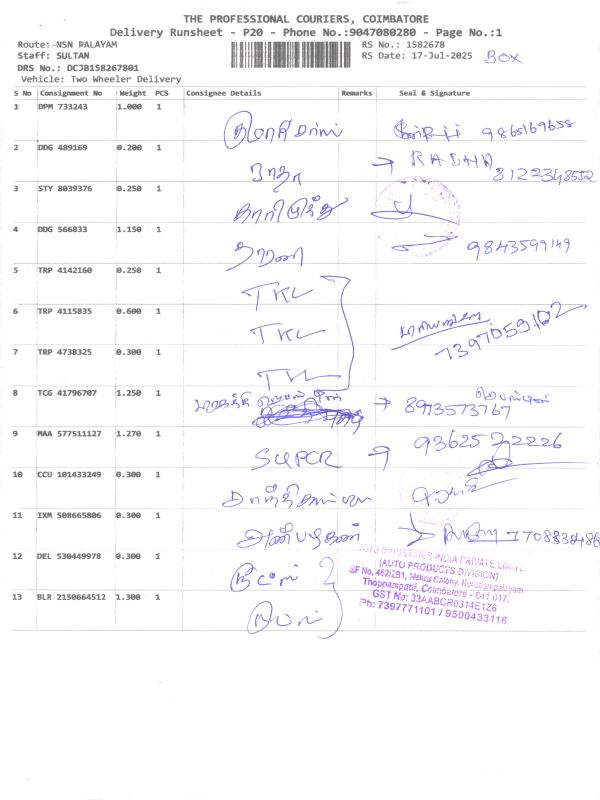 THE PROFESSIONAL COURIERS, COIMBATORE
Delivery Runsheet - P20 - Phone No.:9047080280 - Page No.:1
Route:-NSN PALAYAM RS No.: 1582678
Staff: SULTAN RS Date: 17-Jul-2025 BOX
DRS No.: DCJB158267801
Vehicle: Two Wheeler Delivery
S No Consignment No Weight PCS Consignee Details Remarks Seal & Signature
1 DPM 733243 1.000 1
9865169658
2 DDG 489169 0.200 1 ராதா → RADHA
8122348552
3 STY 8039376 0.250 1
4 DDG 566833 1.150 1 தாரணி 9843599149
5 TRP 4142160 0.250 1 TKL
6 TRP 4115835 0.600 1 TKL 7397059102
7 TRP 4738325 0.300 1 TKL
8 TCG 41796707 1.250 1 → 8973573767
9 MAA 577511127 1.270 1 SUPER → 9362522226
10 CCU 101433249 0.300 1
11 IXM 508665806 0.300 1 அன்பழகன்
12 DEL 530449978 0.300 1
INDUSTRIES INDIA PRIVATE LIMITE
(AUTO PRODUCTS DIVISION)
SF No. 462/2B1, Nehru Colony, Kurudampalayam
Thoppampatti, Coimbatore - 641 017.
GST No: 33AABCR0314E1Z6
Ph: 7397771101 / 9500433116
13 BLR 2150664512 1.300 1